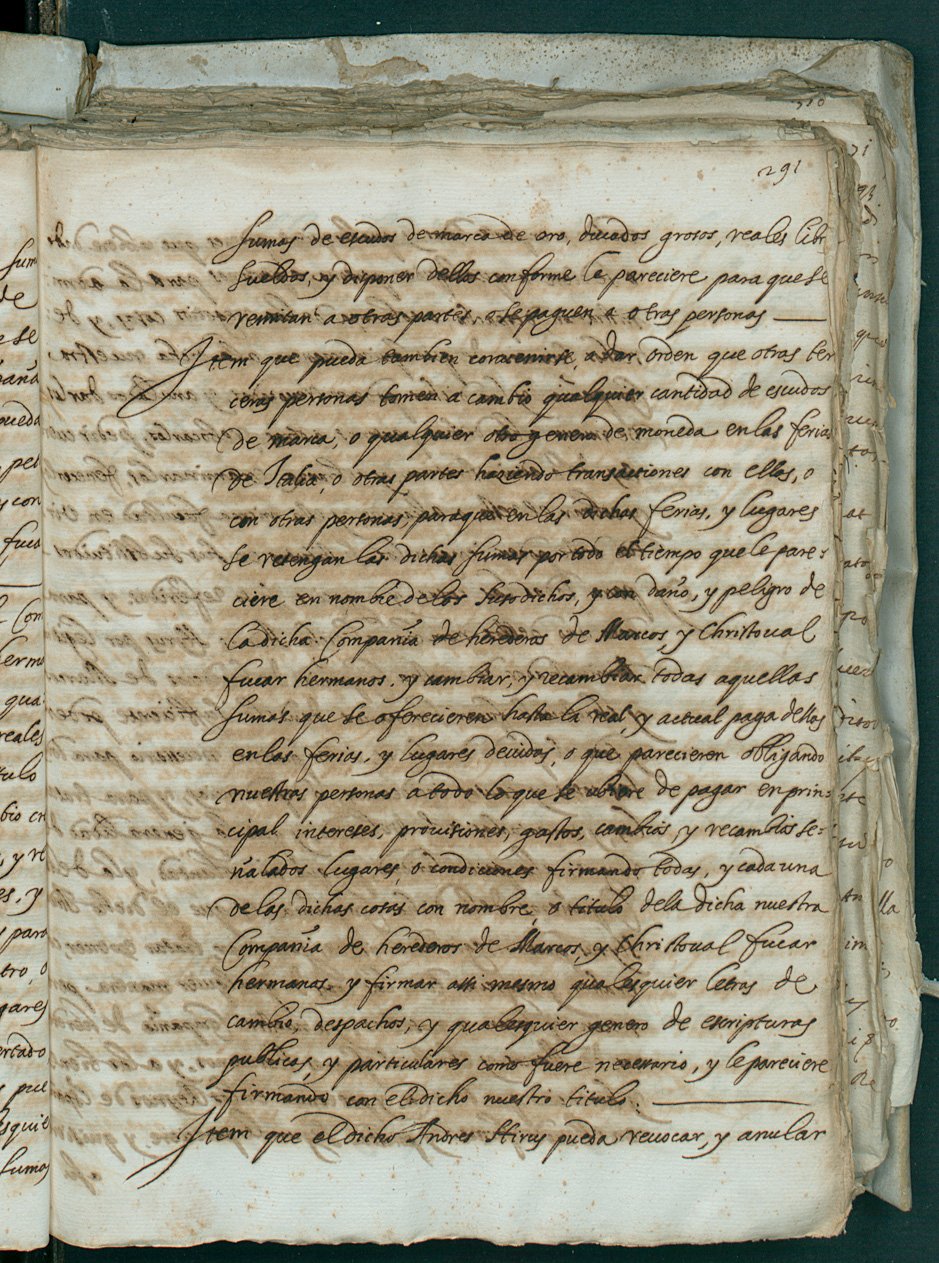 291
sumas de escudos de marco de oro, ducados grosos, reales libr
sueldos, y disponer dellos conforme le pareciere para que se
remitan a otras partes, o se paguen a otras personas
Item que pueda tambien convenirse, a dar orden que otras ter
ceras personas tomen a cambio qualquier cantidad de escudos
de marca, o qualquier otro genero de moneda en las ferias
de Italia, o otras partes haziendo transactiones con ellos, o
con otras personas, paraque en las dichas ferias, y lugares
se retengan las dichas sumas por todo el tiempo que le pare:
ciere en nombre de los susodichos, y con daño, y peligro de
la dicha Compañia de herederos de Marcos, y Christoual
fucar hermanos, y cambiar, y recambiar todas aquellas
sumas que se oforecieren hasta la real, y actual paga dellos
en las ferias, y lugares deuidos, o que parecieren obligando
nuestras personas a todo lo que se ubiere de pagar en prin:
cipal intereses, prouisiones, gastos, cambios, y recambios se:
ñalados lugares, o condiciones firmando todas, y cada una
de las dichas cosas con nombre, o titulo dela dicha nuestra
Compañia de herederos de Marcos, y Christoual fucar
hermanos. y firmar assi mesmo qualesquier letras de
cambio, despachos, y qualesquier genero de escripturas
publicas, y particulares como fuere necessario, y le pareciere
firmando con el dicho nuestro titulo.
Item que el dicho Andres Hirus pueda reuocar, y anular